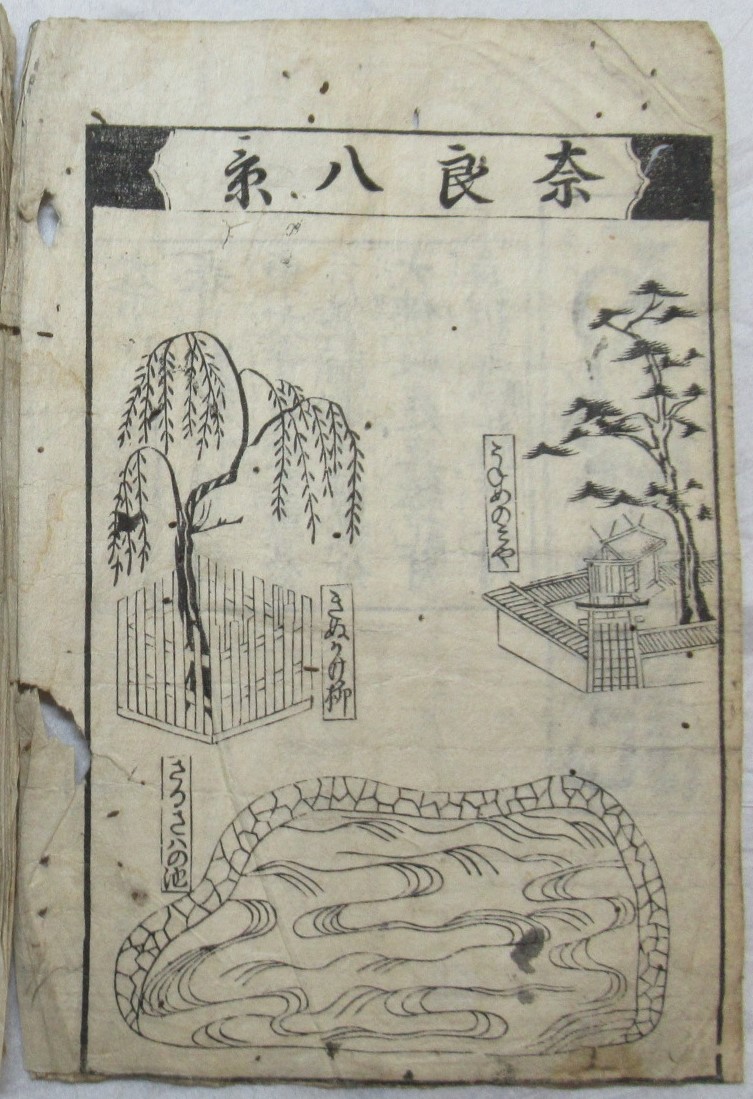 奈良八景
うねめのミや
きぬかけ柳
さるさハの池